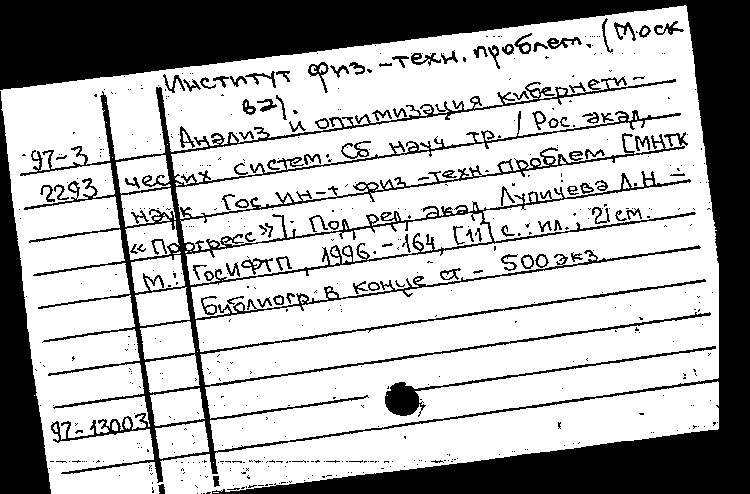 Институт физ.-техн. проблем. (Моск
ва).
97-3 Анализ и оптимизация кибернети-
2293 ческих систем: Сб. науч. тр. / Рос. акад.
наук, Гос. ин-т физ.-техн. проблем, [МНТК
«Прогресс»]; Под ред. акад. Лупичева Л.Н. -
М.: ГосИФТП, 1996. - 164, [11] с.: ил.; 21 см.
Библиогр. в конце ст. - 500 экз.
97-13003